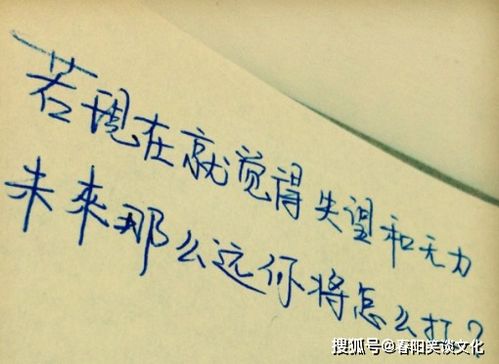 若现在就觉得失望和无力
未来那么远你将怎么扛?
搜狐号@春阳笑谈文化